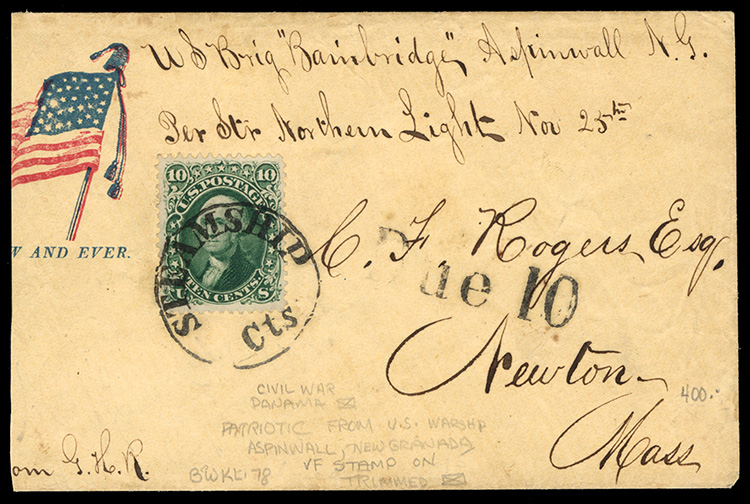 U S Brig "Bainbridge", Aspinwall N. G.
Per Str Northern Light Nov 25th
10 10
U.S. POSTAGE
U S
TEN CENTS
STEAMSHIP
Cts
W AND EVER.
C. F. Rogers Esq.
Due 10
Newton
Mass
400.
CIVIL WAR
PANAMA ✉
PATRIOTIC FROM U.S. WARSHIP
ASPINWALL, NEW GRANADA
VF STAMP ON
TRIMMED ✉
om G. H. R.